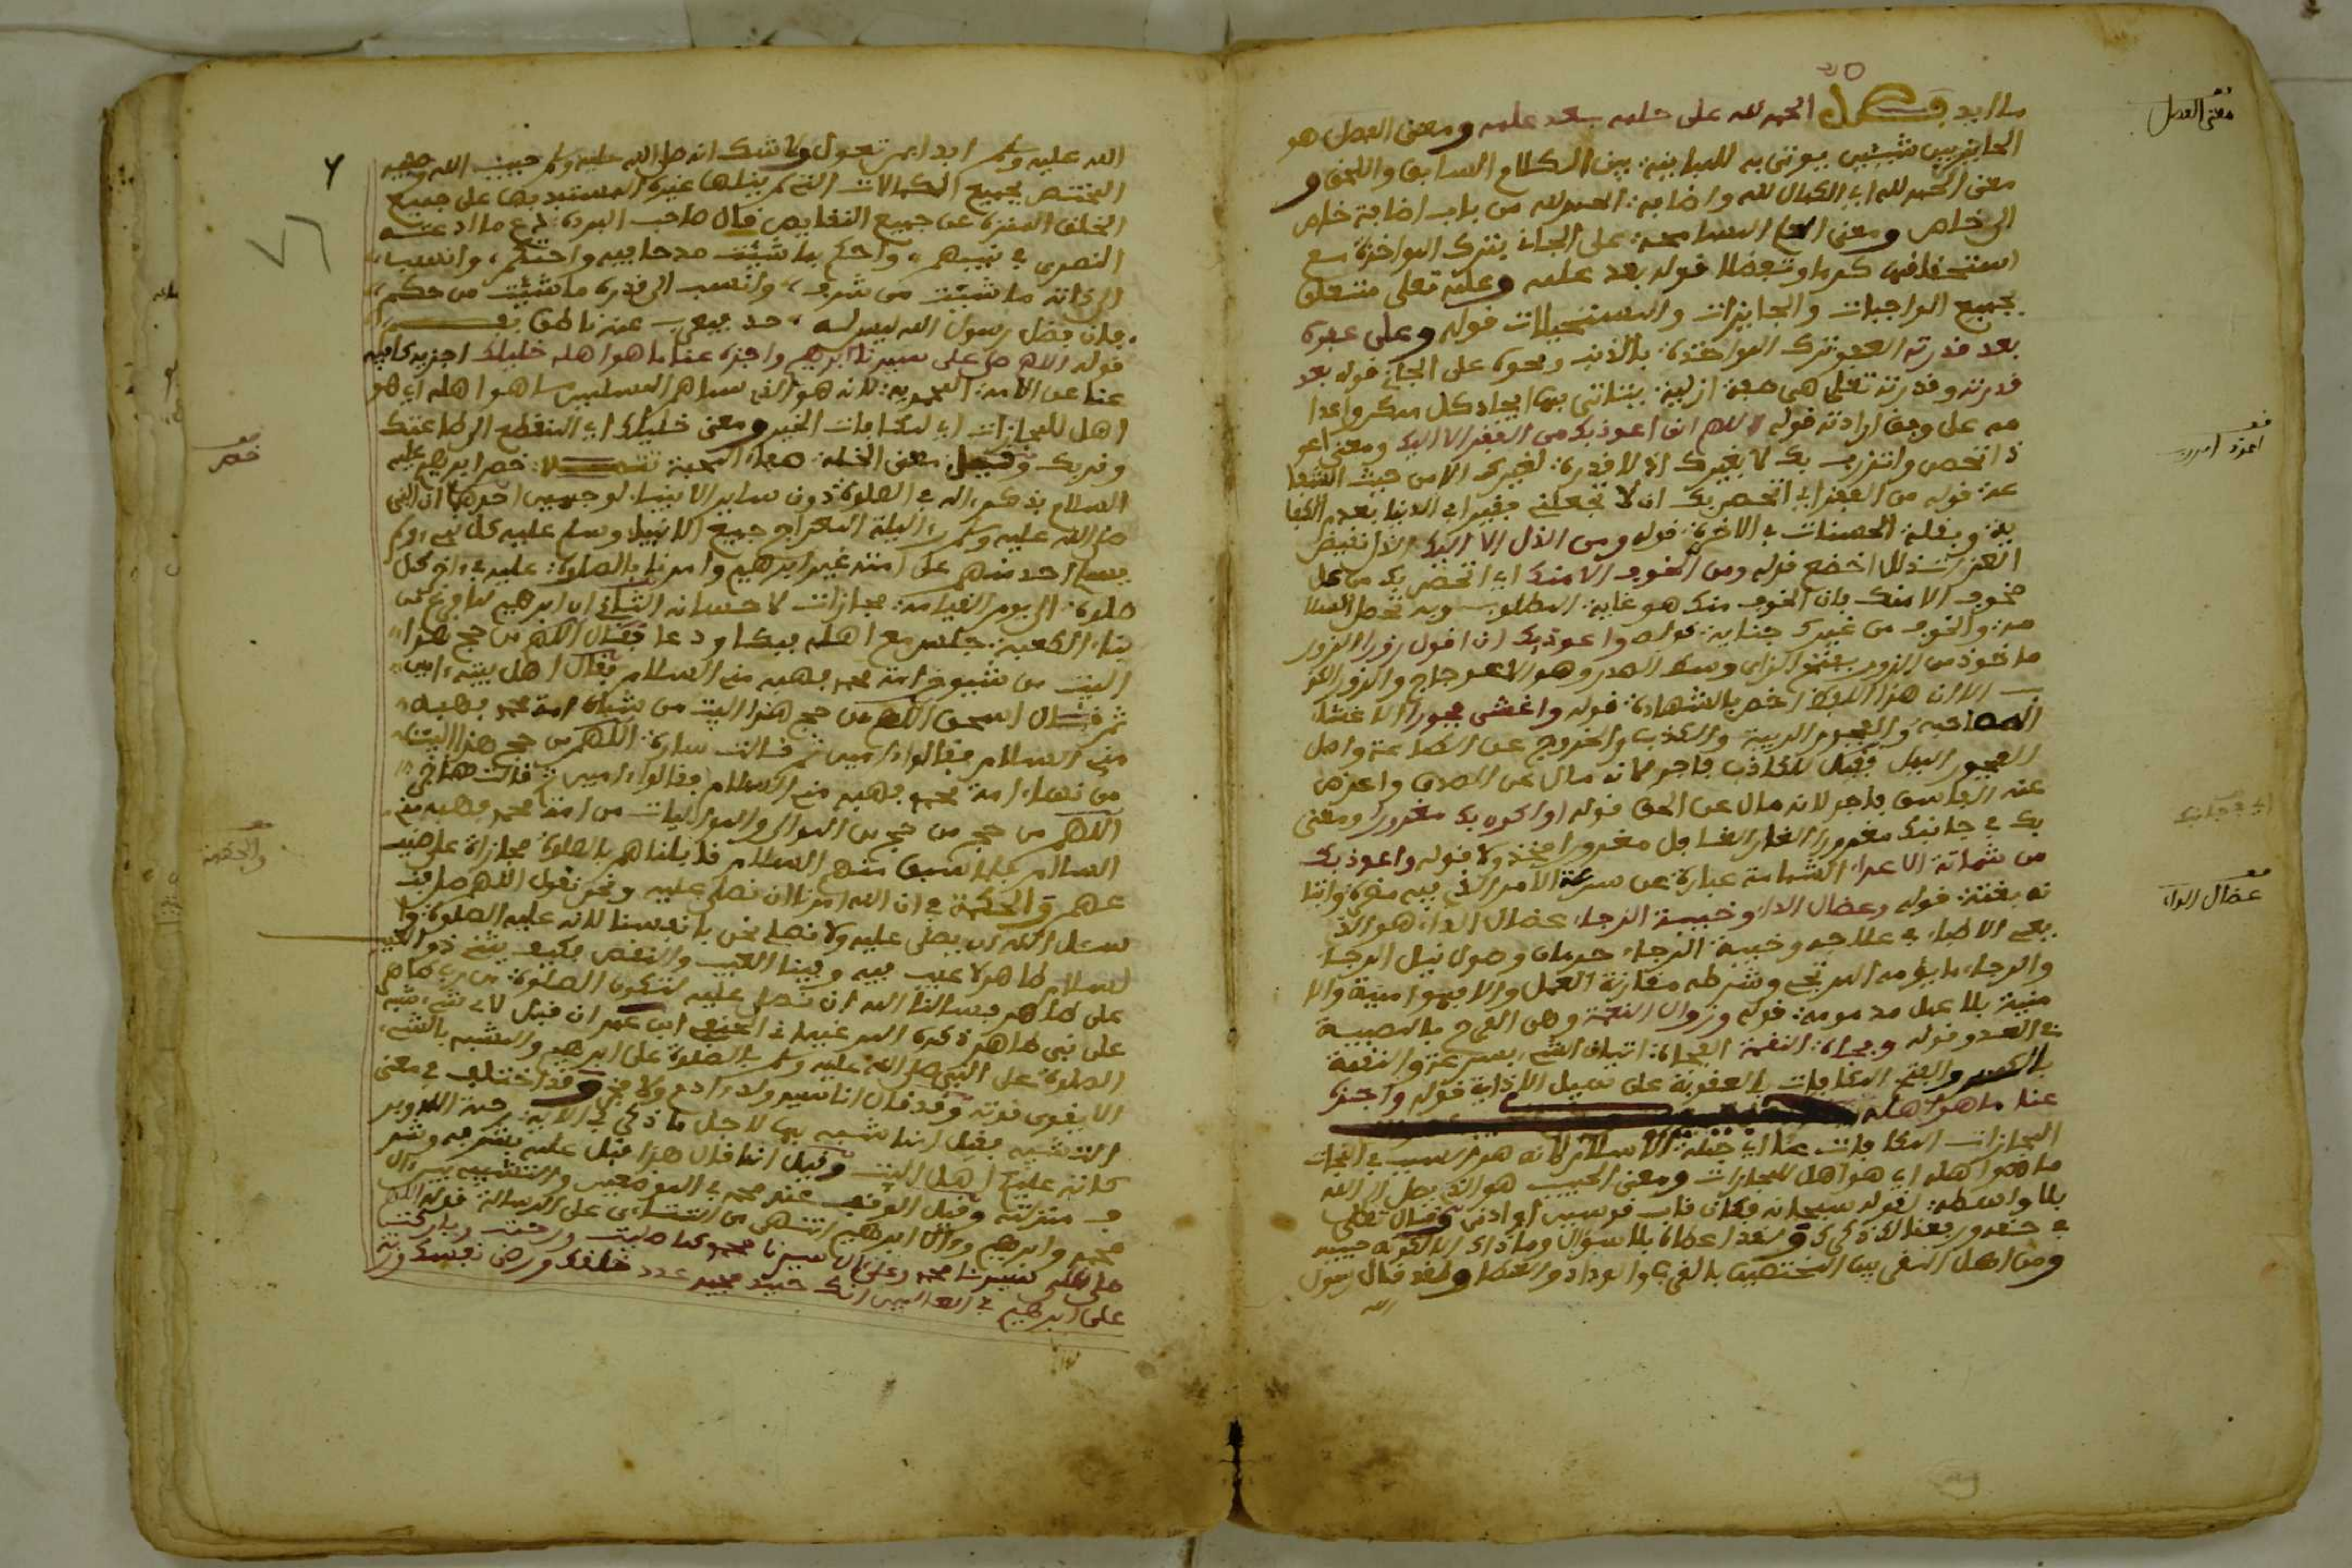 ما ابد فصل الحمد لله على حلمه بعد علمه ومعنى الفصل هو
الحاجز بين شيئين يوتى به للمباينة بين الكلام السابق واللاحق و
معنى الحمد لله اي الكمال لله واضافة الحمد لله من باب اضافة خاص
الى خاص ومعنى الحلم المسامحة على الجاني بترك المواخذة مع
استحقاقها كرما وتفضلا قوله بعد علمه وعلمه تعلى متعلق
بجميع الواجبات والجايزات والمستحيلات قوله وعلى عفوه
بعد قدرته العفو ترك المواخذة بالذنب ونحوه على الجاني قوله بعد
قدرته وقدرته تعلى هي صفة ازلية يتاتى بها ايجاد كل ممكن واعدا
مه على وفق ارادته قوله اللهم اني اعوذ بك من الفقر الا اليك ومعنى اعو
ذ اتحصن واتزرب بك لا بغيرك اذ لا قدرة لغيرك الا من حيث الشفا
عة قوله من الفقر اي اتحصن بك ان لا تجعلني فقيرا في الدنيا بعدم الكفا
ية وبقلة الحسنات في الاخرة قوله ومن الذل الا اليك الذل نقيض
العز تذلل اخضع قوله ومن الخوف الا منك اي اتحصن بك من كل
مخوف الا منك بان الخوف منك هو غاية المطلوب وبه تحصل السلا
مة والخوف من غيرك جناية قوله واعوذ بك ان اقول زورا الزور
ماخوذ من الزور بفتح الزاي وسط الصدر وهو الاعوجاج والزور الكذ
ب الا ان هذا اللفظ اخص بالشهادة قوله واغشى فجورا الاغشا
المصاحبة والفجور الريبة والكذب والخروج عن الطاعة واصل
الفجور الميل فقيل للكاذب فاجر لانه مال عن الصدق واعرض
عنه الفاسق فاجر لانه مال عن الحق قوله او اكون بك مغرورا ومعنى
بك في جانبك مغرورا الغار الغافل مغرورا مخذولا قوله واعوذ بك
من شماتة الاعداء الشماتة عبارة عن سرعة الامر الذي فيه مضرة واتيا
نه بغتة قوله وعضال الداء وخيبة الرجاء عضال الداء هو الذي
يعيي الاطباء في علاجه وخيبة الرجاء حرمان وصول نيل الرجاء
والرجاء ما يؤمه المرتجي وشرطه مقارنة العمل والا فهو امنية والا
منية بلا عمل مذمومة قوله وزوال النعمة وهي الفرح بالمصيبة
في العدو قوله وفجاءة النقمة الفجاءة اتيان الشيء بسرعة والنقمة
بالكسر والفتح المكافات بالعقوبة على سبيل الاذاية قوله واجزه
عنا ما هو اهله
المجازات المكافات عنا اي جملة الاسلام لانه هو السبب في النجات
ما هو اهله اي هو اهل للمجازات ومعنى الحبيب هو الذي يصل الى الله
بلا واسطة لقوله سبحانه فكان قاب قوسين او ادنى وقال تعلى
في حقه ورفعنا لك ذكرك وقد اعطاه بلا سوال وما ذاك الا لكونه حبيبه
ومن اهل التقريب المختصين بالقرب والوداد والعطا ولقد قال رسول
الله
معنى الفصل
اعوذ اتزرب
اي في جانبك
عضال الداء
الله عليه وسلم ابدا بمن تعول ولا شك انه صلى الله عليه وسلم حبيب الله وصفيه
المختص بجميع الكمالات التي لم ينلها غيره المستند بها على جميع
الخلق المنزه عن جميع النقايص قال صاحب البردة دع ما ادعته
النصرى في نبيهم، واحكم بما شئت مدحا فيه واحتكم، وانسب
الى ذاته ما شئت من شرف، وانسب الى قدره ما شئت من حكم
فان فضل رسول الله ليس له، حد فيعرب عنه ناطق بفم
قوله اللهم صل على سيدنا ابرهيم واجزه عنا ما هو اهله خليلك اجزيه كافيه
عنا عن الامة المحمدية لانه هو الذي سماهم المسلمين ما هو اهله اي هو
اهل للمجازات اي لمكافات الخير ومعنى خليلك اي المنقطع الى طاعتك
وقربك وقيل معنى الخلة صفاء المحبة خص ابرهيم عليه
السلام بذكره اله في الصلوة دون ساير الانبياء لوجهين احدهما ان النبي
صلى الله عليه وسلم راى ليلة المعراج جميع الانبياء وسلم عليه كل نبي ولم
يسلم احد منهم على امته غير ابرهيم وامرنا بالصلوة عليه في اخر كل
صلوة الى يوم القيامة مجازات لاحسانه الثاني ان ابرهيم لما فرغ من
بناء الكعبة جلس مع اهله فبكا ودعا فقال اللهم من حج هذا
البيت من شيوخ امة محمد فهبه مني السلام فقال اهل بيته امين
ثم قال اسحق اللهم من حج هذا البيت من شباب امة محمد فهبه
مني السلام فقالوا امين ثم قالت سارة اللهم من حج هذا البيت
من نساء امة محمد فهبه مني السلام فقالوا امين ثم قالت هاجر
اللهم من حج من الموالي والمواليات من امة محمد فهبه مني
السلام فلما سبق منهم السلام قابلناهم بالصلوة مجازاة على صنيـ
ـعهم والحكمة في ان الله امرنا ان نصلي عليه ونحن نقول اللهم صل فنـ
سئل الله ان يصلي عليه ولا نصلي نحن بانفسنا لانه عليه الصلوة وا
لسلام طاهر لا عيب فيه وفينا العيب والنقص فكيف يثني ذو العيب
على طاهر فسالنا الله ان نصلي عليه لتكون الصلوة من رب طاهر
على نبي طاهر ذكره المرغيناني الحنفي ابن عمر ان قيل لاي شيء شبه
الصلوة على النبي صلى الله عليه وسلم بالصلوة على ابرهيم والمشبه بالشيء
لا يقوى قوته وقد قال انا سيد ولد ادم ولا فخر وقد اختلف في معنى
التشبيه فقيل انما شبه بها لاجل ما ذكر في الاية رحمة الله وبر
كاته عليكم اهل البيت وقيل انما قال هذا قبل علمه بشرفه وشر
ف منزلته وقيل الوقف عند محمد في الموضعين والتشبيه بين ال
محمد وابرهيم وال ابرهيم انتهى من التتائي على الرسالة قوله اللهم
صل على سيدنا محمد وعلى ال سيدنا محمد كما صليت ورحمت وباركت
على ابرهيم في العالمين انك حميد مجيد عدد خلقك ورضى نفسك وزنة
خص
والحكمة